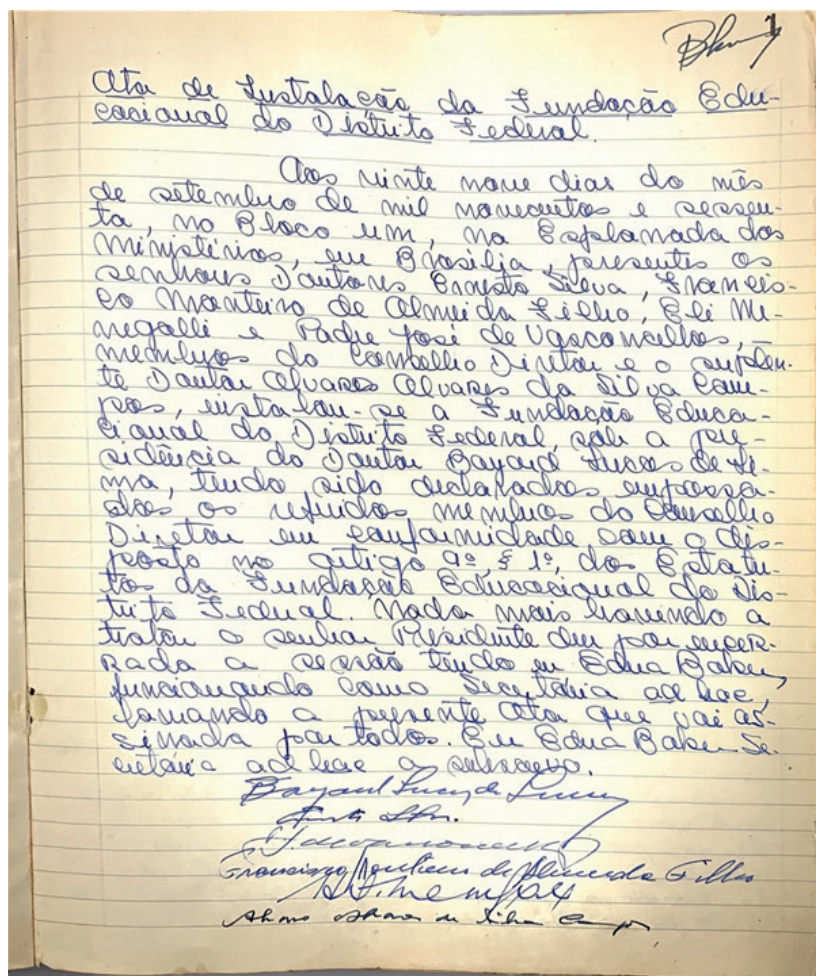 1
Ata de Instalação da Fundação Edu-
cacional do Distrito Federal.
Aos vinte nove dias do mês
de setembro de mil novecentos e sessen-
ta, no Bloco um, na Esplanada dos
Ministérios, em Brasília, presentes os
senhores Doutores Ernesto Silva, Francis-
co Monteiro de Almeida Filho, Eli Me-
negalli e Padre José de Vasconcellos,
membros do Conselho Diretor e o suplen-
te Doutor Alvares da Silva Cam-
pos, instalou-se a Fundação Educa-
cional do Distrito Federal, sob a pre-
sidência do Doutor Bayard Lucas de Li-
ma, tendo sido declarados empossa-
dos os referidos membros do Conselho
Diretor em conformidade com o dis-
posto no artigo 9º, § 1º, dos Estatu-
tos da Fundação Educacional do Dis-
trito Federal. Nada mais havendo a
tratar o senhor Presidente deu por encer-
rada a sessão tendo eu Edna Baker,
funcionando como Secretária ad hoc,
a presente Ata que vai as-
sinada por todos. Eu Edna Baker Se-
cretária ad hoc a subscrevo.
Bayard Lucas de Lima
Ernesto Silva
Francisco Monteiro de Almeida Filho
Alvares da Silva Campos